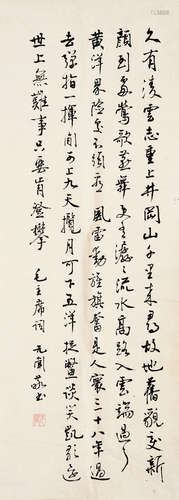 久有凌雲志重上井岡山千里來尋故地舊貌變新
顏到處鶯歌燕舞更有潺潺流水高路入雲端過了
黃洋界險處不須看風雷動旌旗奮是人寰三十八年過
去彈指一揮間可上九天攬月可下五洋捉鱉談笑凱歌還
世上無難事只要肯登攀 毛主席詞